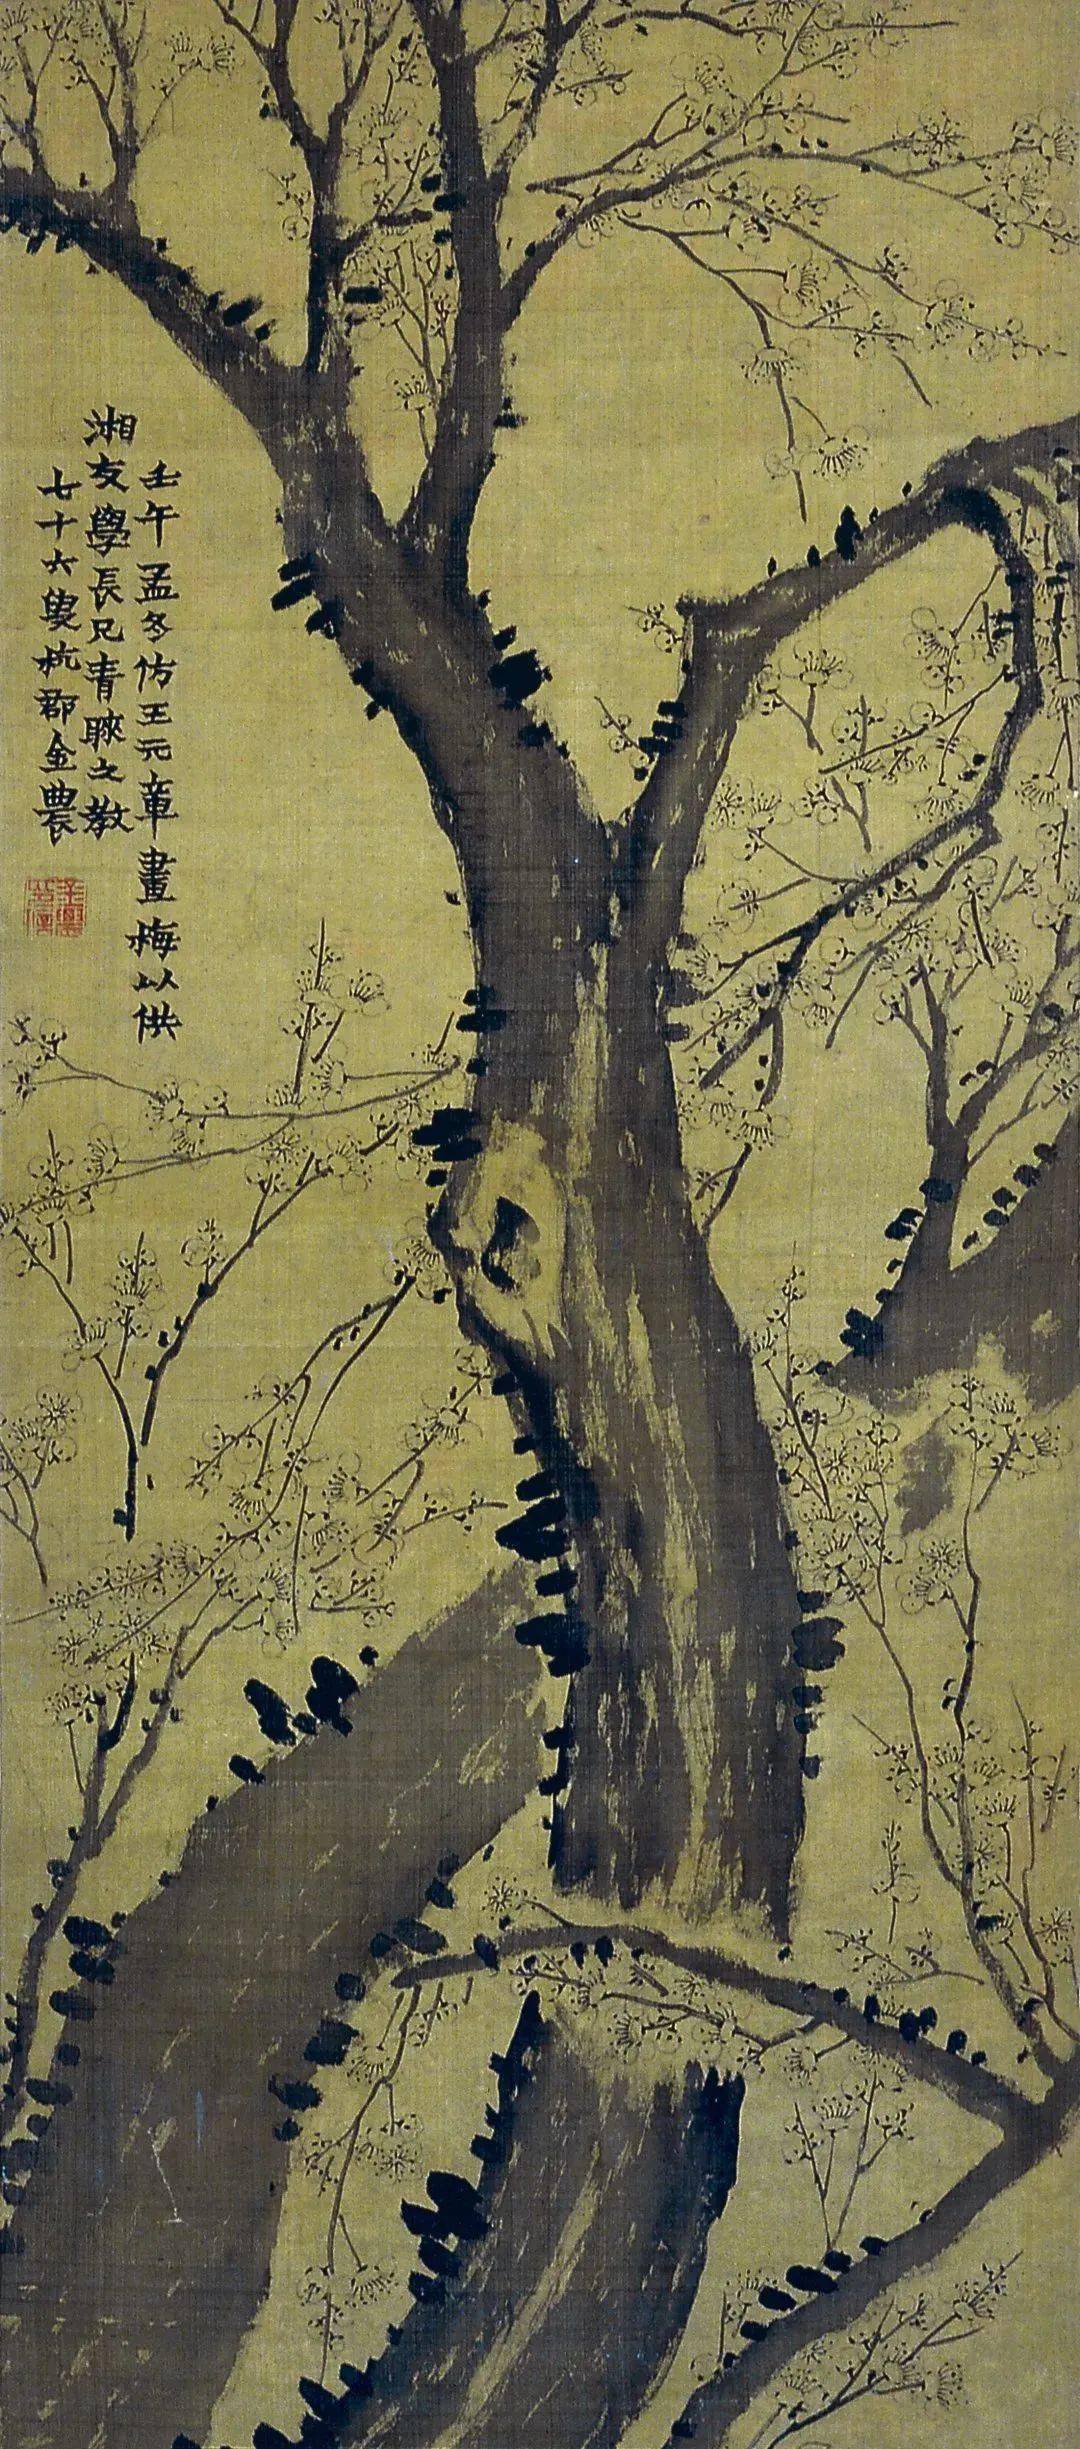 壬午孟冬仿王元章畫梅以供
湘友學長兄青睞之教
七十六叟杭郡金農